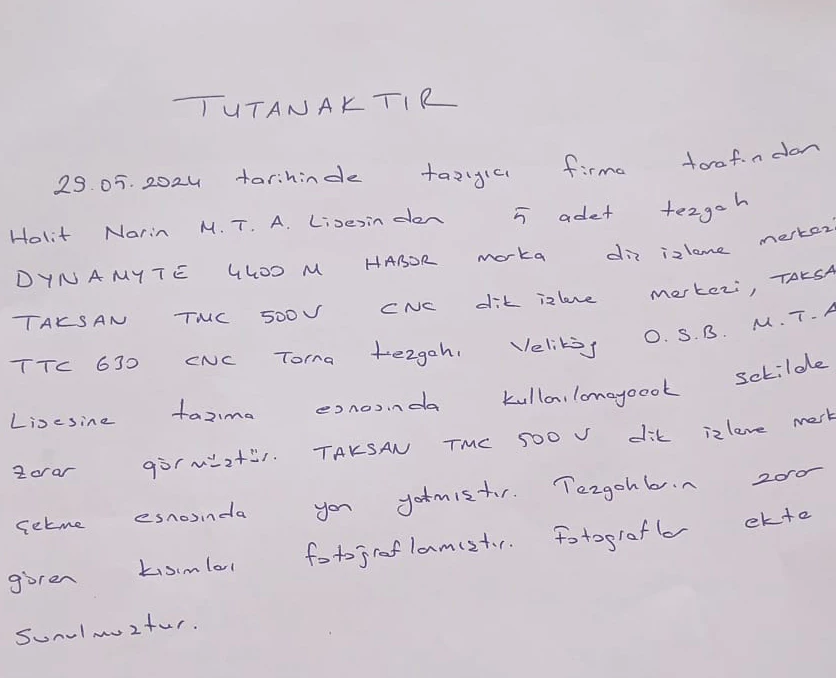 TUTANAKTIR
29.05.2024 tarihinde taşıyıcı firma tarafından
Halit Narin M.T.A. Lisesinden 5 adet tezgah
DYNAMYTE 4400 M HABOR marka dik işleme merkezi
TAKSAN TMC 500V CNC dik işleme merkezi, TAKSA
TTC 630 CNC Torna tezgahı Veliköy O.S.B. M.T.A
Lisesine taşıma esnasında kullanılamayacak şekilde
zarar görmüştür. TAKSAN TMC 500 V dik işleme merk
Çekme esnasında yan yatmıştır. Tezgahların zarar
gören kısımları fotoğraflamıştır. Fotograflar ekte
Sunulmuştur.